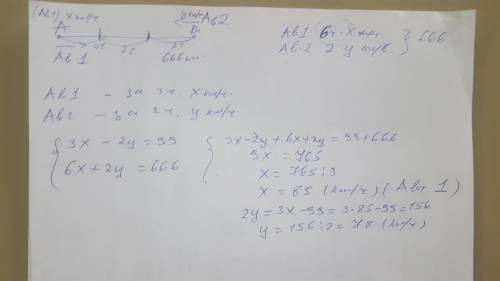 (№1) x км/ч y км/ч Ав2
A B
4ч 2ч 2ч
Ав 1 666 км.
Ав1 (6ч · x км/ч } 666
Ав.2 2 y км/ч.
Ав1 – за 3ч x км/ч.
Ав2 – за 2ч. y км/ч
{ 3x – 2y = 99
6x + 2y = 666
{ 3x – 2y + 6x + 2y = 99 + 666
9x = 765
x = 765 : 9
x = 85 (км/ч) (Авт 1)
2y = 3x – 99 = 3·85 – 99 = 156
y = 156 : 2 = 78 (км/ч)